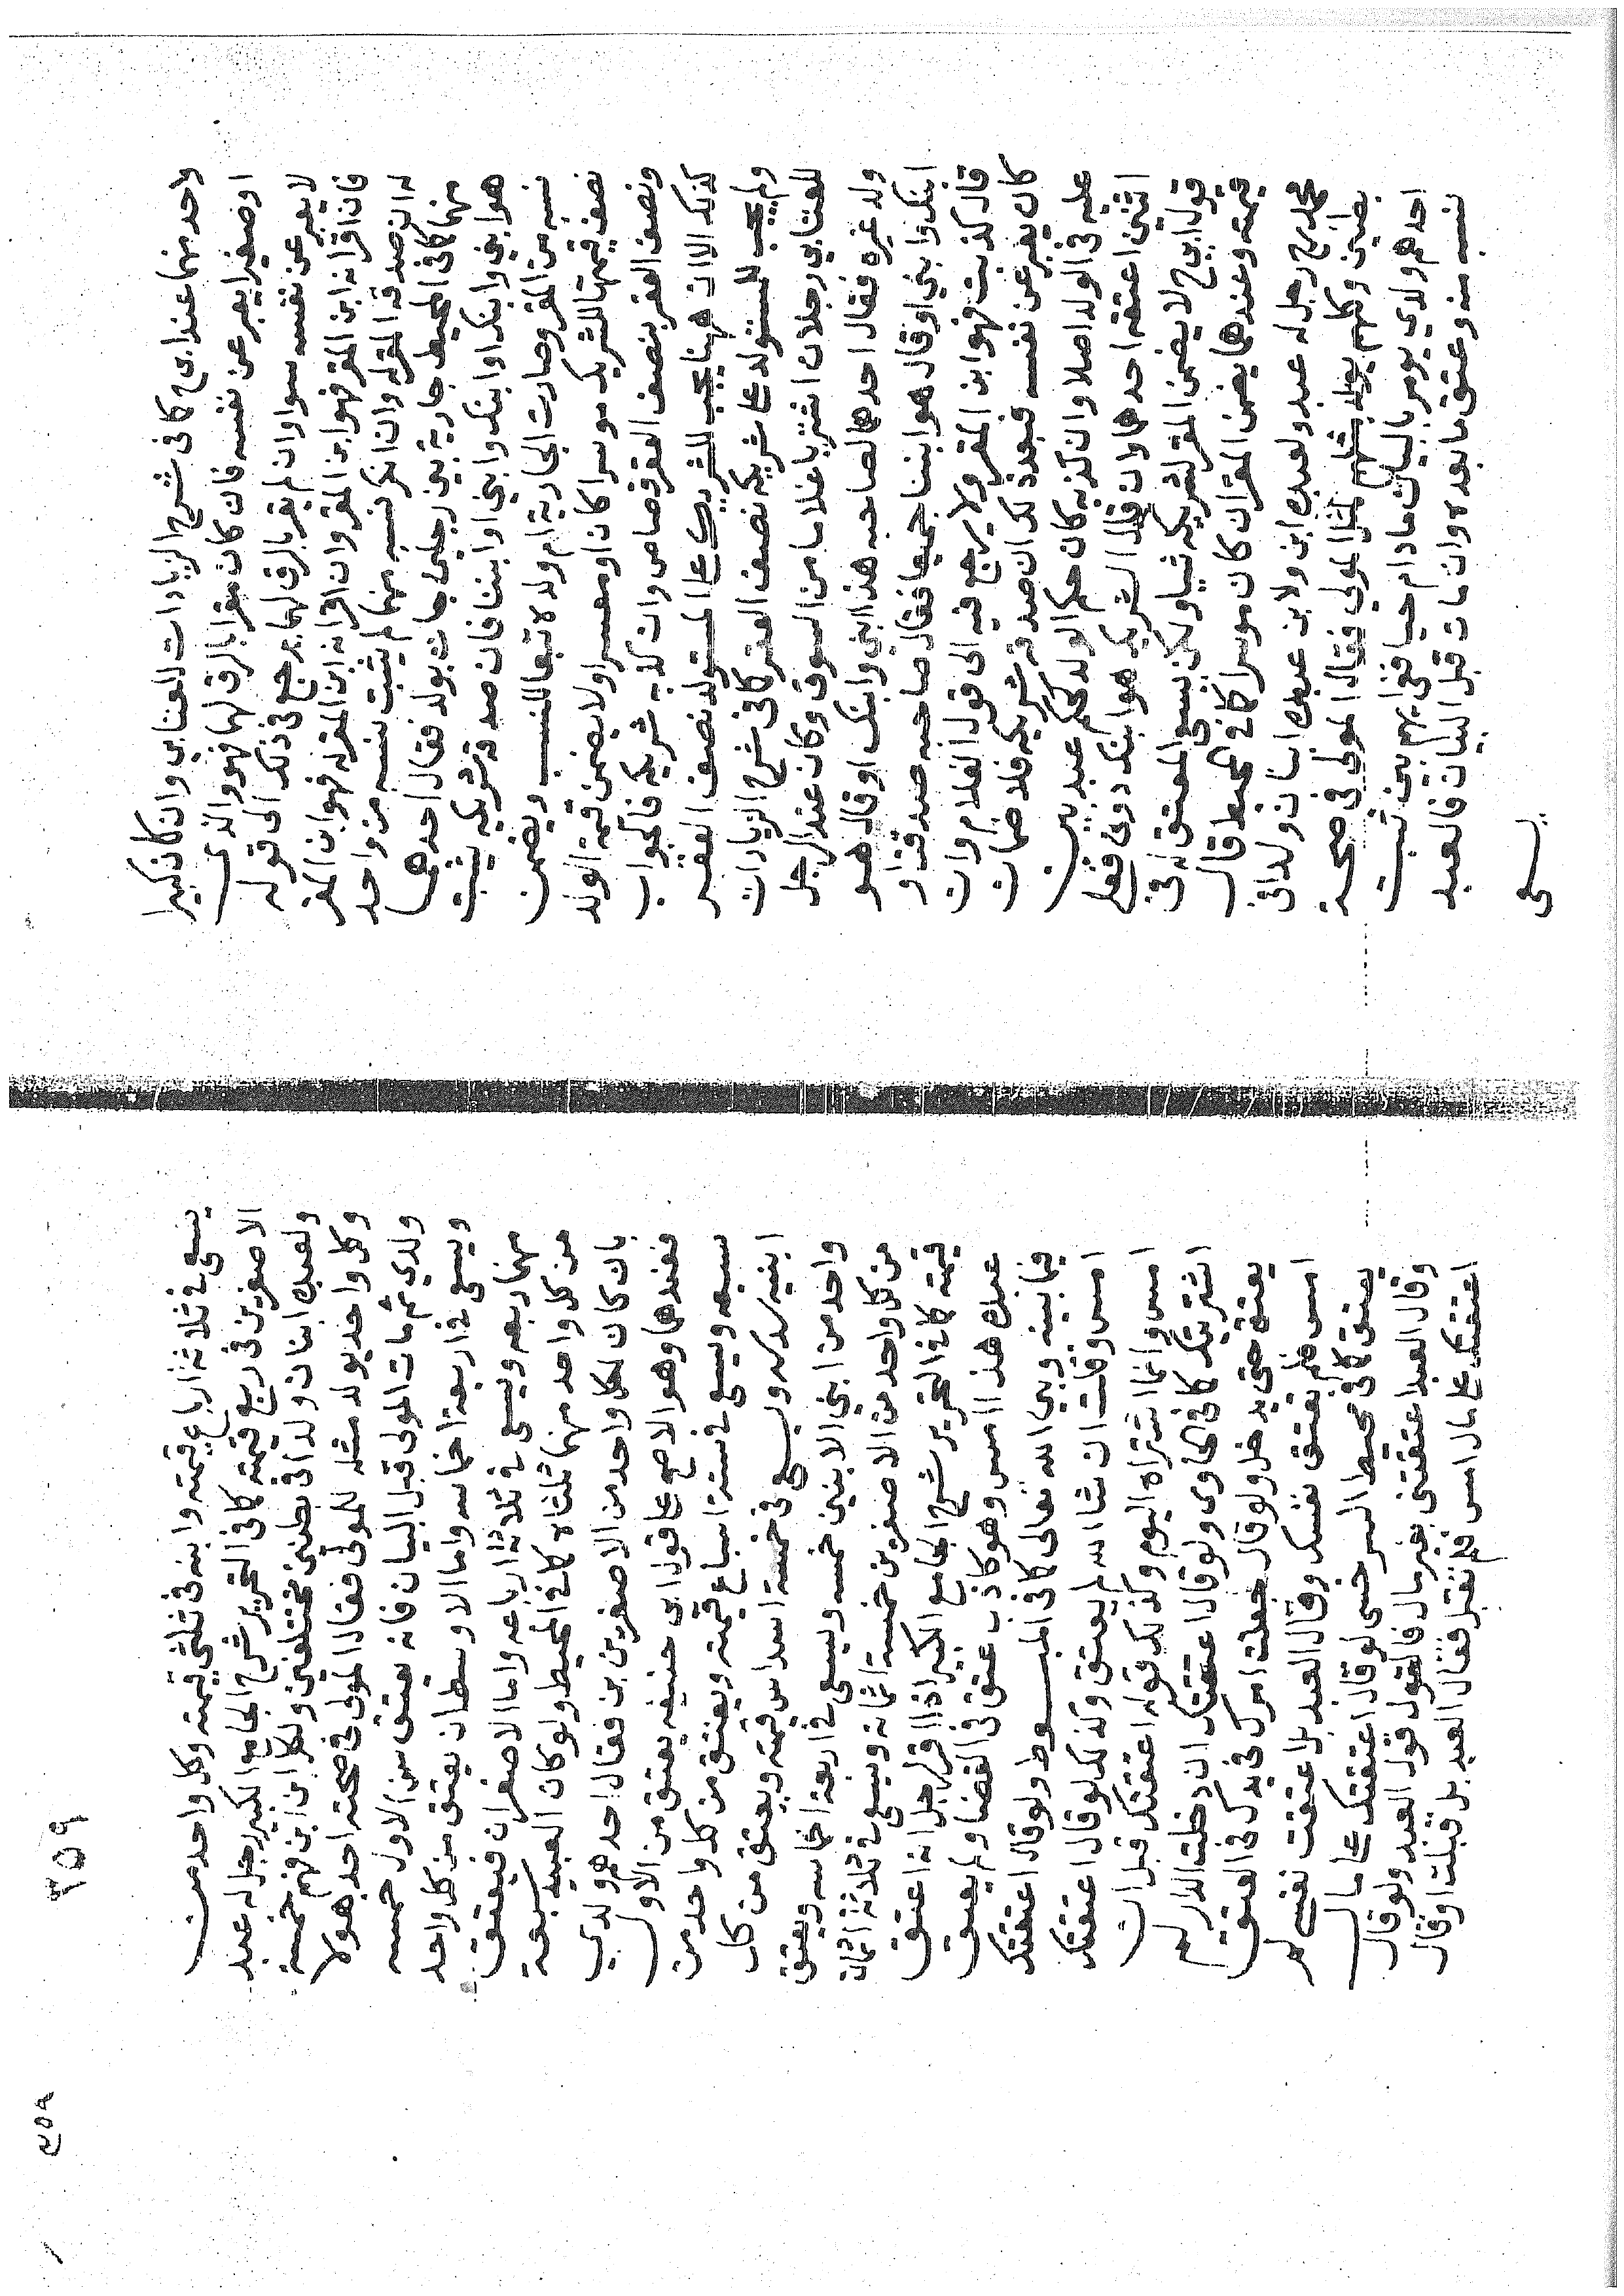 لاحد منهما عند ابي ح كافي شرح الزيادات للعتابي وان كان كبيرا
اوصغيرا يعبر عن نفسه فان كان مقرا بالرق لهما فهو والذي
لا يعبر عن نفسه سوا وان لم يقر بالرق لهما يرجع في ذلك الى قوله
فان اقر انه ابن المقر فهو ابن المقر وان اقر انه ابن المقر له فهو ابن المقر
له ان صدقه المقر له وان انكر نسبه منهما لم يثبت نسبه من واحد
منهما كافي المحيط جارية بين رجلين جات بولد فقال احدهما
هو ابني وابنك او ابنك وابني او ابننا فان صدقه شريكه يثبت
نسبه من المقر وصارت الجارية ام ولد له تبعا للنسب ويضمن
نصف قيمتها للشريك موسرا كان او معسرا ولا يضمن قيمة الولد
ونصف العقر بنصف العقر قصاص وان كذبه شريكه فالجواب
كذلك الا ان ههنا يجب للشريك على المستولد نصف العقر
ولم يجب للمستولد على شريكه نصف العقر كافي شرح الزيادات
للعتابي رجلان اشتريا غلاما من السوق وكان عند الرجل
ولد غيره فقال احدهما لصاحبه هذا ابني وابنك او قال هو
ابنك وابني او قال هو ابننا جميعا فقال صاحبه صدقت او
قال كذبت فهو ابن المقر ولا يرجع فيه الى قول الغلام وان
كان يعبر عن نفسه فبعد ذلك ان صدقه شريكه فلا ضمان
عليه في الولد اصلا وان كذبه كان حكم الولد كحكم عبد بين
اثنين اعتقه احدهما وان قال الشريك هو ابنك دوني فعلى
قول ابي ح لا يضمن المقر لشريكه شيا ولكن يسعى المعتق في
قيمته وعندهما يضمن المقر ان كان موسرا كافي المحيط قال
محمد رح رجل له عبد ولعبده ابن ولابن عبده ابنان ولدا في
بطنين وكلهم يولد مثلهم لمثل المولى فقال المولى في صحة
احدهم ولدي يومر بالبيان ما دام حيا ففي ايهم بين ثبت
نسبه منه وعتق ما بعده وان مات قبل البيان فالعبد
يسعى
٣٥٩
يسعى في ثلاثة ارباع قيمته وابنه في ثلثي قيمته وكل واحد من
الاصغرين في ربع قيمته كافي التحرير شرح الجامع الكبير رجل له عبد
ولعبده ابنان ولدا في بطنين مختلفين ولكل ابن ابن فهم خمسة
وكل واحد يولد مثله للمولى فقال المولى في صحته احد هولا
ولدي ثم مات المولى قبل البيان فانه يعتق من الاول خمسه
ويسعى في اربعة اخماسه واما الاوسطان يعتق من كل واحد
منهما ربعه ويسعى في ثلاثة ارباعه واما الاصغران فيعتق
من كل واحد منهما ثلثاه كافي المحيط ولو كان العبيد سبعة
بان كان لكل واحد من الاصغرين بن فقال احدهم ولدي
فعندهما وهو الاصح على قول ابي حنيفه يعتق من الاول
سبعه ويسعى في ستة اسباع قيمته ويعتق من كل واحد من
ابنيه سدسه ويسعى في خمسة اسداس قيمته ويعتق من كل
واحد من ابني الابنين خمسه ويسعى في اربعة اخماسه ويعتق
من كل واحد من الاصغرين خمسة اثمانه ويسعى في ثلاثة اثمان
قيمته كافي التحرير شرح الجامع الكبير اذا اقر رجل انه اعتق
عبده هذا امس وهو كاذب عتق في القضا ولم يعتق
فيما بينه وبين الله تعالى كافي المبسوط ولو قال اعتقتك
امس وقلت ان شا الله لم يعتق وكذلك لو قال اعتقتك
امس وانما اشتراه اليوم وكذلك قوله اعتقتك قبل ان
اشتريتك كافي الحاوي ولو قال اعتقتك ان دخلت الدار لم
يعتق حتى يدخل ولو قال جعلت امرك في يدك في العتق
امس فلم تعتق نفسك وقال العبد بل اعتقت نفسي لم
يعتق كافي محيط السرخسي لو قال اعتقتك على مال
وقال العبد اعتقتني بغير مال فالقول قول العبد ولو قال
اعتقتك على مال امس فلم تقبل فقال العبد بل قبلت او قال